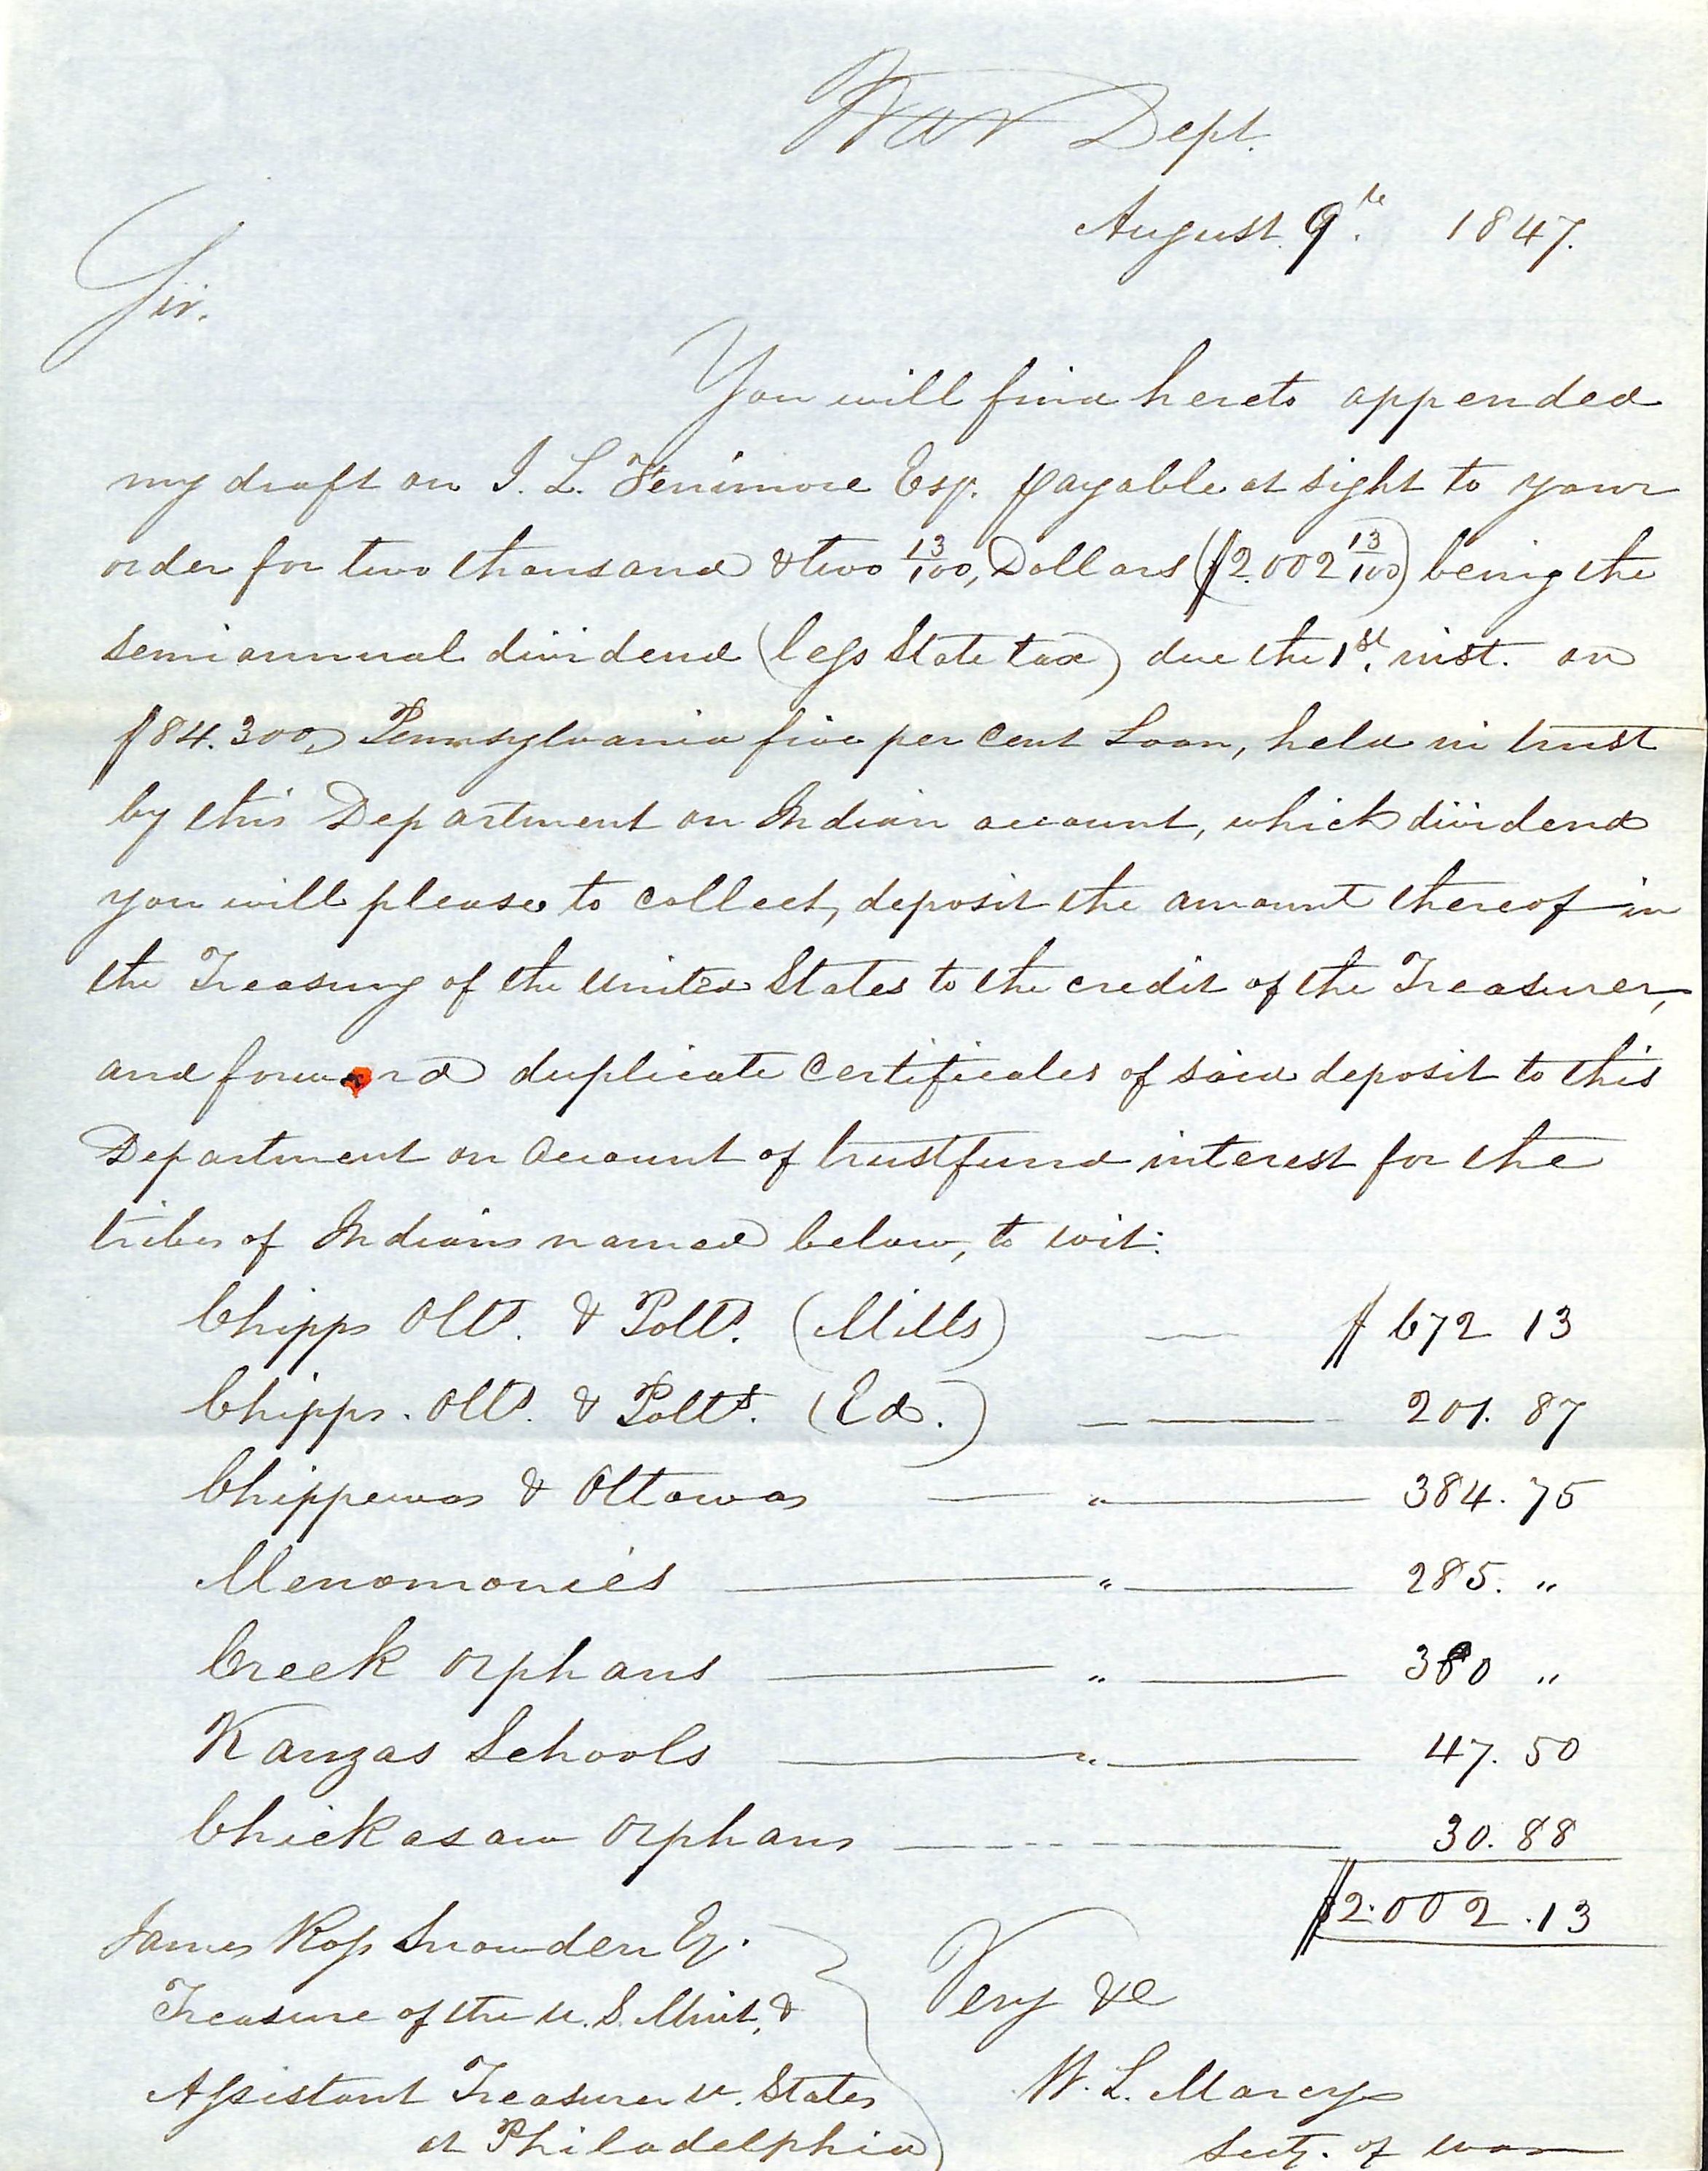 War Dept.
August 9th. 1847.
Sir.
You will find hereto appended
my draft on I. L. Fenimore Esq. payable at sight to your
order for two thousand & two 13/100, Dollars ($2.002 13/100) being the
semi annual dividend (less State tax) due the 1st. inst. on
$84.300, Pennsylvania five per cent Loan, held in trust
by this Department on Indian account, which dividend
you will please to collect, deposit the amount thereof in
the Treasury of the United States to the credit of the Treasurer,
and forward duplicate certificates of said deposit to this
Department on account of trust fund interest for the
tribes of Indians named below, to wit:
Chipps Otts. & Potts. (Mills) — $672 13
Chipps. Otts. & Potts. (Ed.) — — 201. 87
Chippewas & Ottowas — " — 384. 75
Menomonies — " — 285. "
Creek Orphans — " — 380 "
Kanzas Schools — " — 47. 50
Chickasaw Orphans — - - — 30. 88
$2.002.13
James Ross Snowden Eq.
Treasure of the U. S. Mint, &
Assistant Treasurer U. States
at Philadelphia
Very &c
W. L. Marcy
Secty. of War